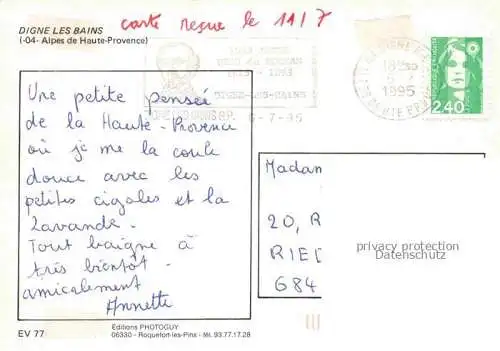 DIGNE LES BAINS
(-04- Alpes de Haute-Provence)
carte reçue le 11/7
18H30
1995
2,40
6-7-95
Une petite pensée
de la Haute-Provence
où je me la coule
douce avec les
petites cigales et la
Lavande.
Tout baigne à
très bientôt.
amicalement
Annette
Madam
20, R
RIED
684
privacy protection
Datenschutz
EV 77
Editions PHOTOGUY
06330 - Roquefort-les-Pins - tél. 93.77.17.28